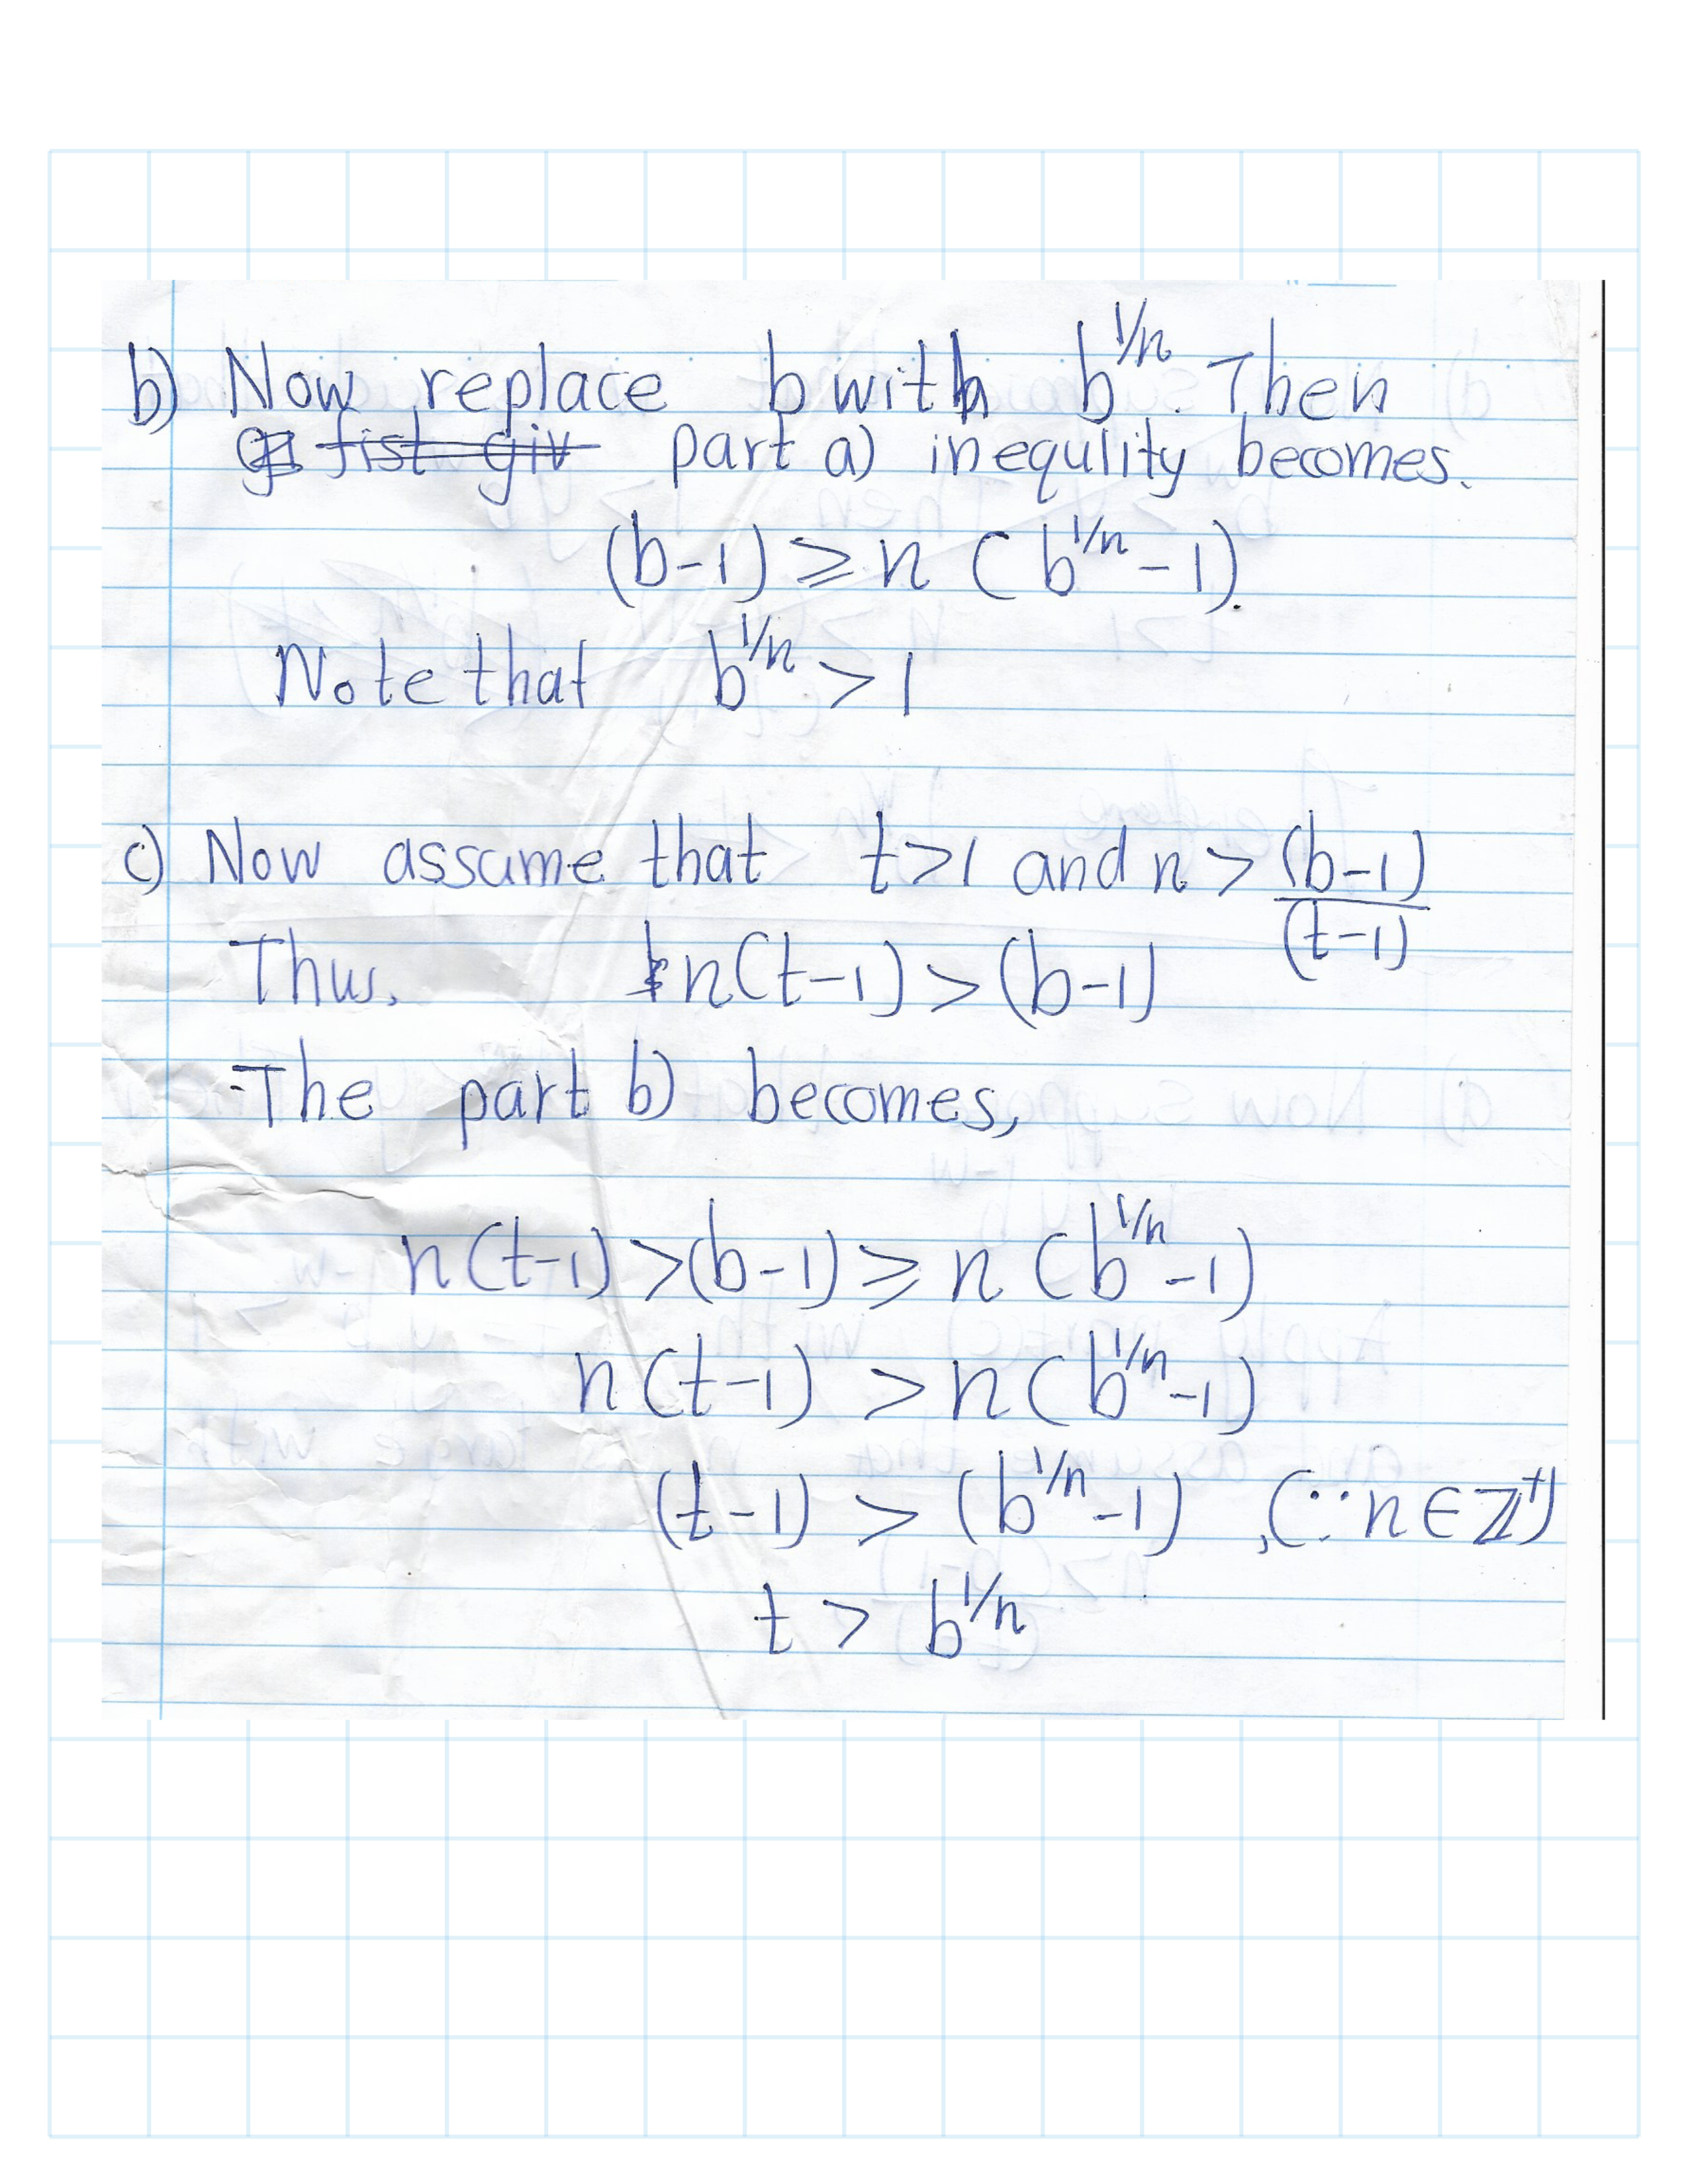 b) Now replace b with b^{1/n}. Then
part a) inequlity becomes.
(b-1) ≥ n (b^{1/n} - 1).
Note that b^{1/n} > 1
c) Now assume that t>1 and n > (b-1)/(t-1)
Thus, n(t-1) > (b-1)
The part b) becomes,
n(t-1) > (b-1) ≥ n (b^{1/n} - 1)
n(t-1) > n(b^{1/n} - 1)
(t-1) > (b^{1/n} - 1) , (∵ n ∈ ℤ⁺)
t > b^{1/n}